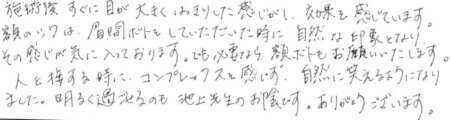 施術後、すぐに目が大きくはっきりした感じがし、効果を感じています。
額のシワは、眉間ボトをしていただいた時に自然な印象となり
その感じが気に入っております。でも必要なら、額ボトもお願いいたします。
人と接する時に、コンプレックスを感じず、自然に笑えるようになり
ました。明るく過せるのも池上先生のお陰です。ありがとうございます。